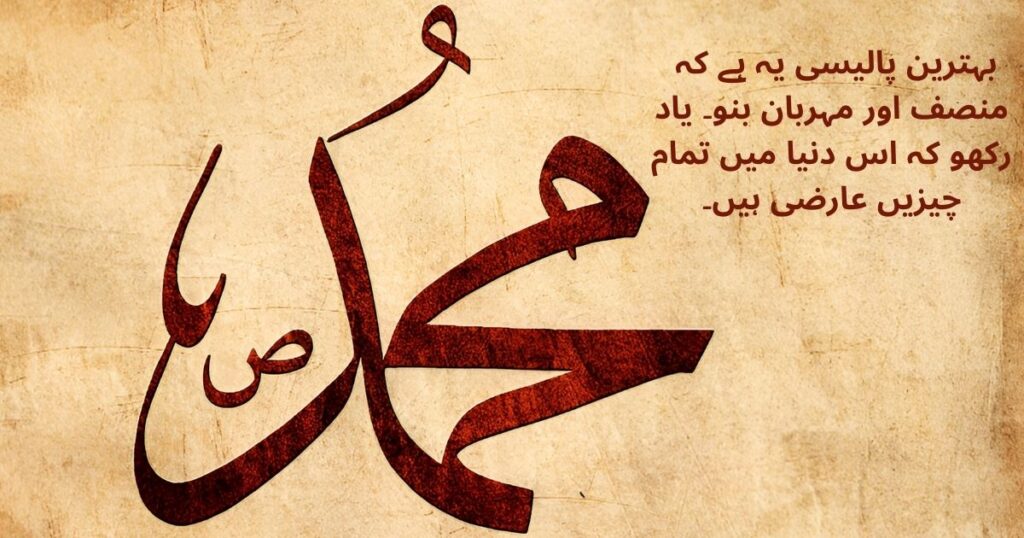 بہترین پالیسی یہ ہے کہ
منصف اور مہربان بنو۔ یاد
رکھو کہ اس دنیا میں تمام
چیزیں عارضی ہیں۔
محمد
ص